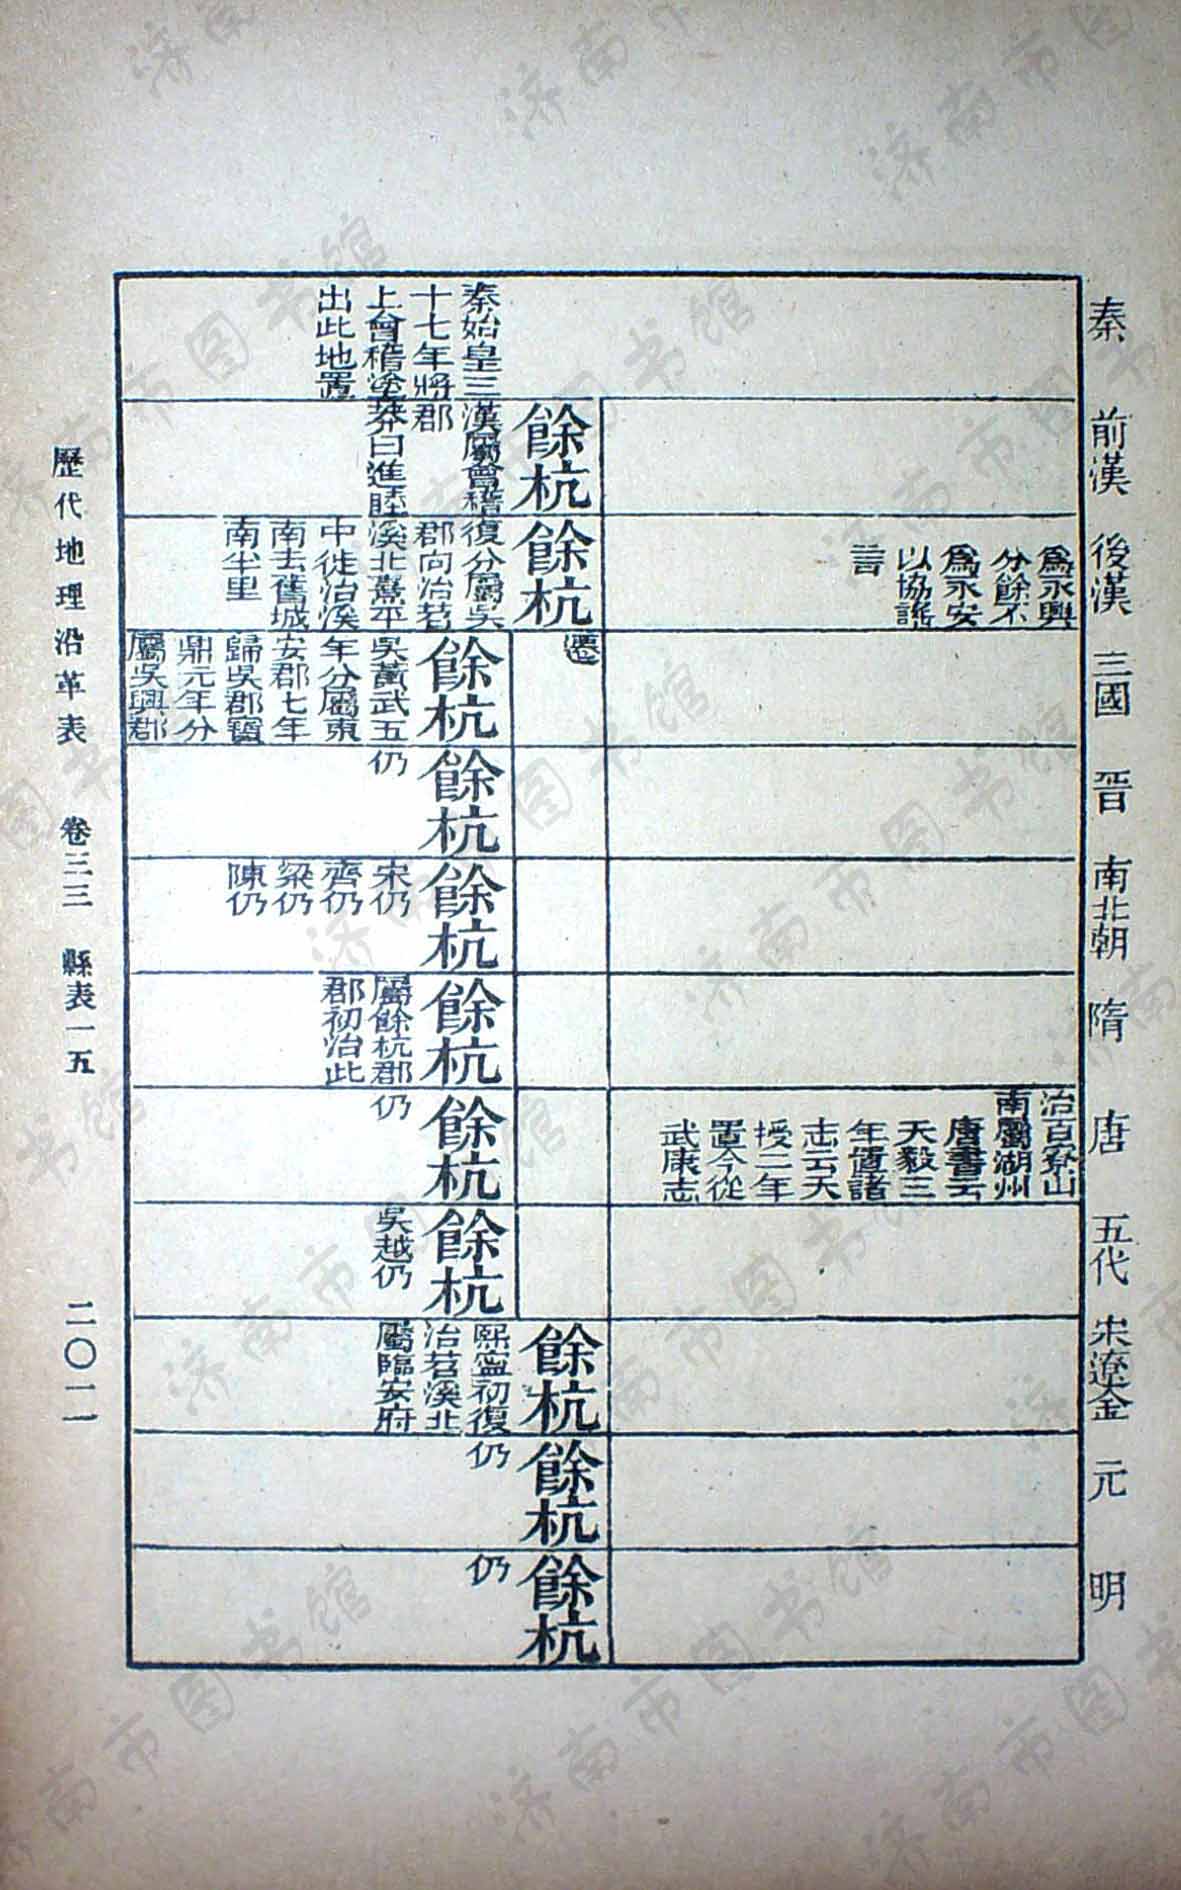 秦
前漢
後漢
三國
晋
南北朝
隋
唐
五代
宋遼金
元
明
秦始皇三
十七年將
上會稽塗
出此地置
餘杭
漢屬會稽
郡
莽曰進睦
爲永興
分餘不
爲永安
以協謠
言
餘杭
復分屬吳
郡向治苕
溪北熹平
中徙治溪
南去舊城
南半里
遷
餘杭
吳黃武五
年分屬東
安郡七年
歸吳郡寶
鼎元年分
屬吳興郡
餘杭
仍
餘杭
宋仍
齊仍
梁仍
陳仍
餘杭
屬餘杭郡
郡初治此
治百寮山
南屬湖州
唐書云
天毅三
年置諸
志云天
授二年
置今從
武康志
餘杭
仍
餘杭
吳越仍
餘杭
熙寧初復
治苕溪北
屬臨安府
餘杭
仍
餘杭
仍
歷代地理沿革表 卷三三 縣表一五 二〇一一
济南市图书馆